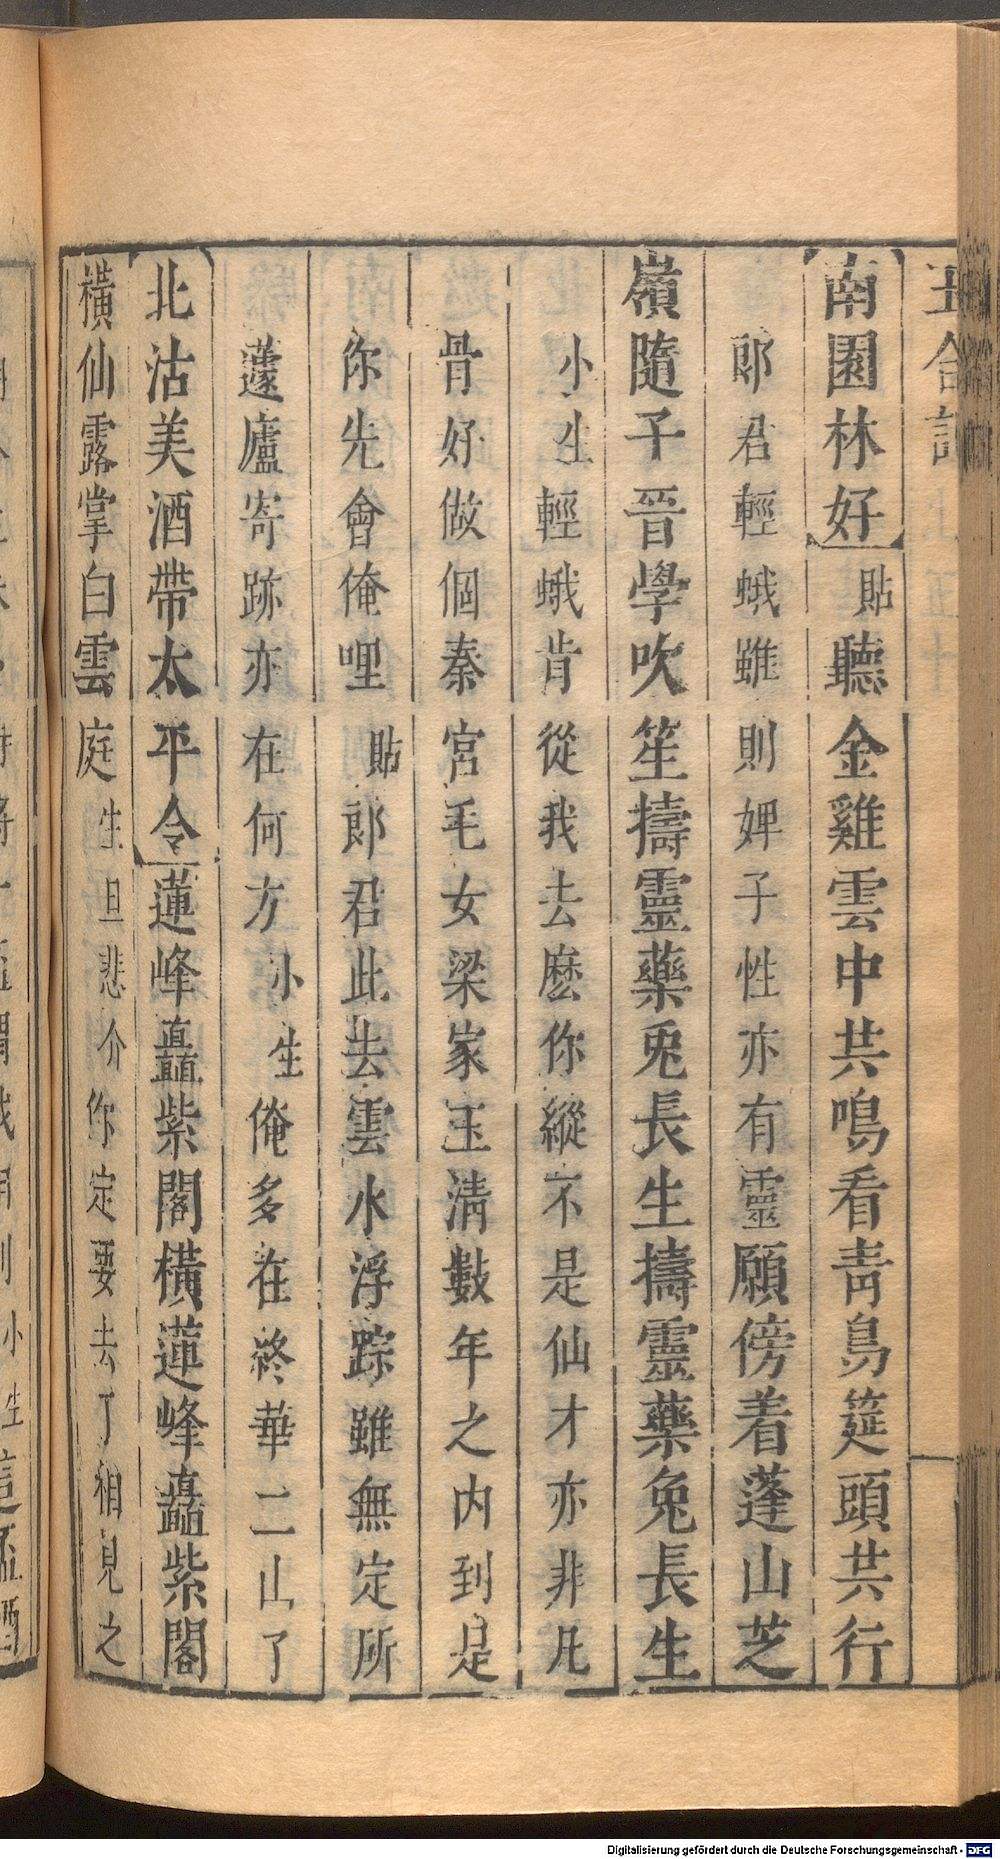 南園林好貼聽金雞雲中共鳴看靑鳥筵頭共行
郎君輕蛾雖則婢子性亦有靈願傍着蓬山芝
嶺隨子晉學吹笙擣靈藥兎長生擣靈藥兔長生
小生輕蛾肯從我去麽你縱不是仙才亦非凡
骨好做個秦宮毛女梁家玉淸數年之内到是
你先會俺哩貼郎君此去雲水浮踪雖無定所
蘧廬寄跡亦在何方小生俺多在終華二山了
北沽美酒帶太平令蓮峰矗紫閣橫蓮峰矗紫閣
橫仙露掌白雲庭生旦悲介你定要去了相見之
Digitalisierung gefördert durch die Deutsche Forschungsgemeinschaft - DFG